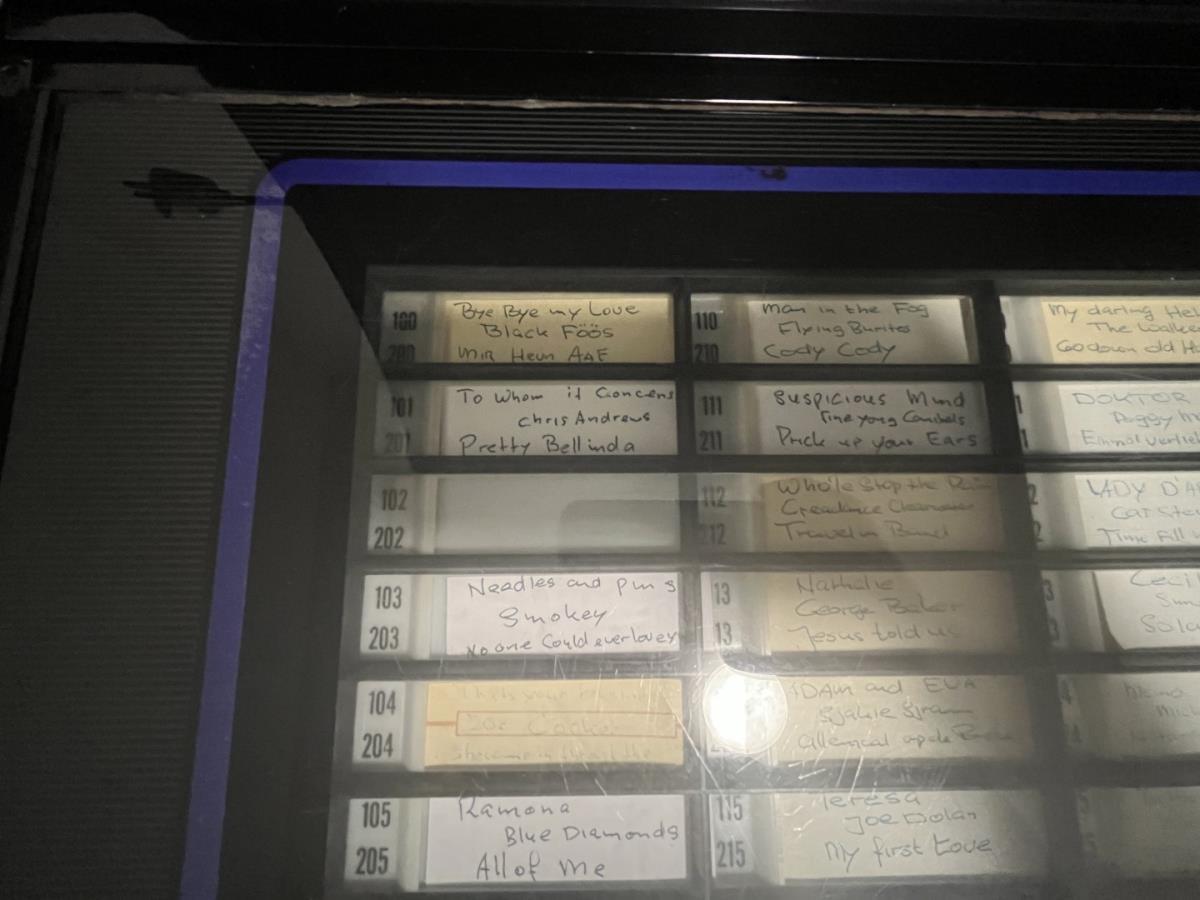 100
Bye Bye my Love
Black Föös
200
Mir Heun AAF
110
Man in the Fog
Flying Burites
210
Cody Cody
My daring
The
Go down old
101
To Whom it Concens
Chris Andrews
201
Pretty Bellinda
111
Suspicious Mind
Fine yong Canibels
211
Prick up your Ears
1
DOKTOR
Peggy
1
Einmal verlie
102
202
112
Who'le Stop the Rain
Creadince
212
Travel in Band
2
LADY D'A
Cat Ste
2
Time Fill
103
Needles and Pins
Smokey
203
No one Could ever lovey
13
Nathalie
George Baker
13
Jesus told us
3
Ceci
3
104
Joe Cocker
204
ADAM and EVA
Sjakie
105
Ramona
Blue Diamonds
205
All of Me
115
Teresa
Joe Dolan
215
My first Love